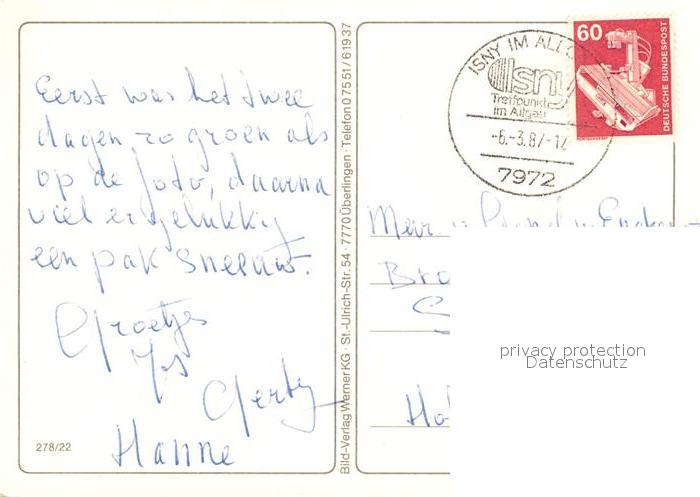 Eerst was het twee
dagen zo groen als
op de foto, daarna
viel er gelukkig
een pak sneeuw.
Groetjes
Jos
Gerty
Hanne
278/22
Bild-Verlag Werner KG · St.-Ulrich-Str. 54 · 7770 Überlingen · Telefon 07551/61937
ISNY IM ALLG
Isny
Treffpunkt
im Allgäu
-6.-3.87-12
7972
60
DEUTSCHE BUNDESPOST
Bro
Hol
privacy protection
Datenschutz